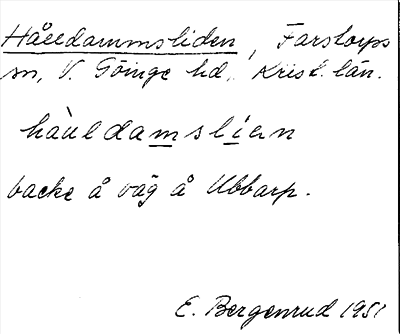 Hålldammsliden, Farstorps
sn, V. Göinge hd, Krist. län.
hàuldamslíen
backe å väg å Ubbarp.
E. Bergenrud 1951